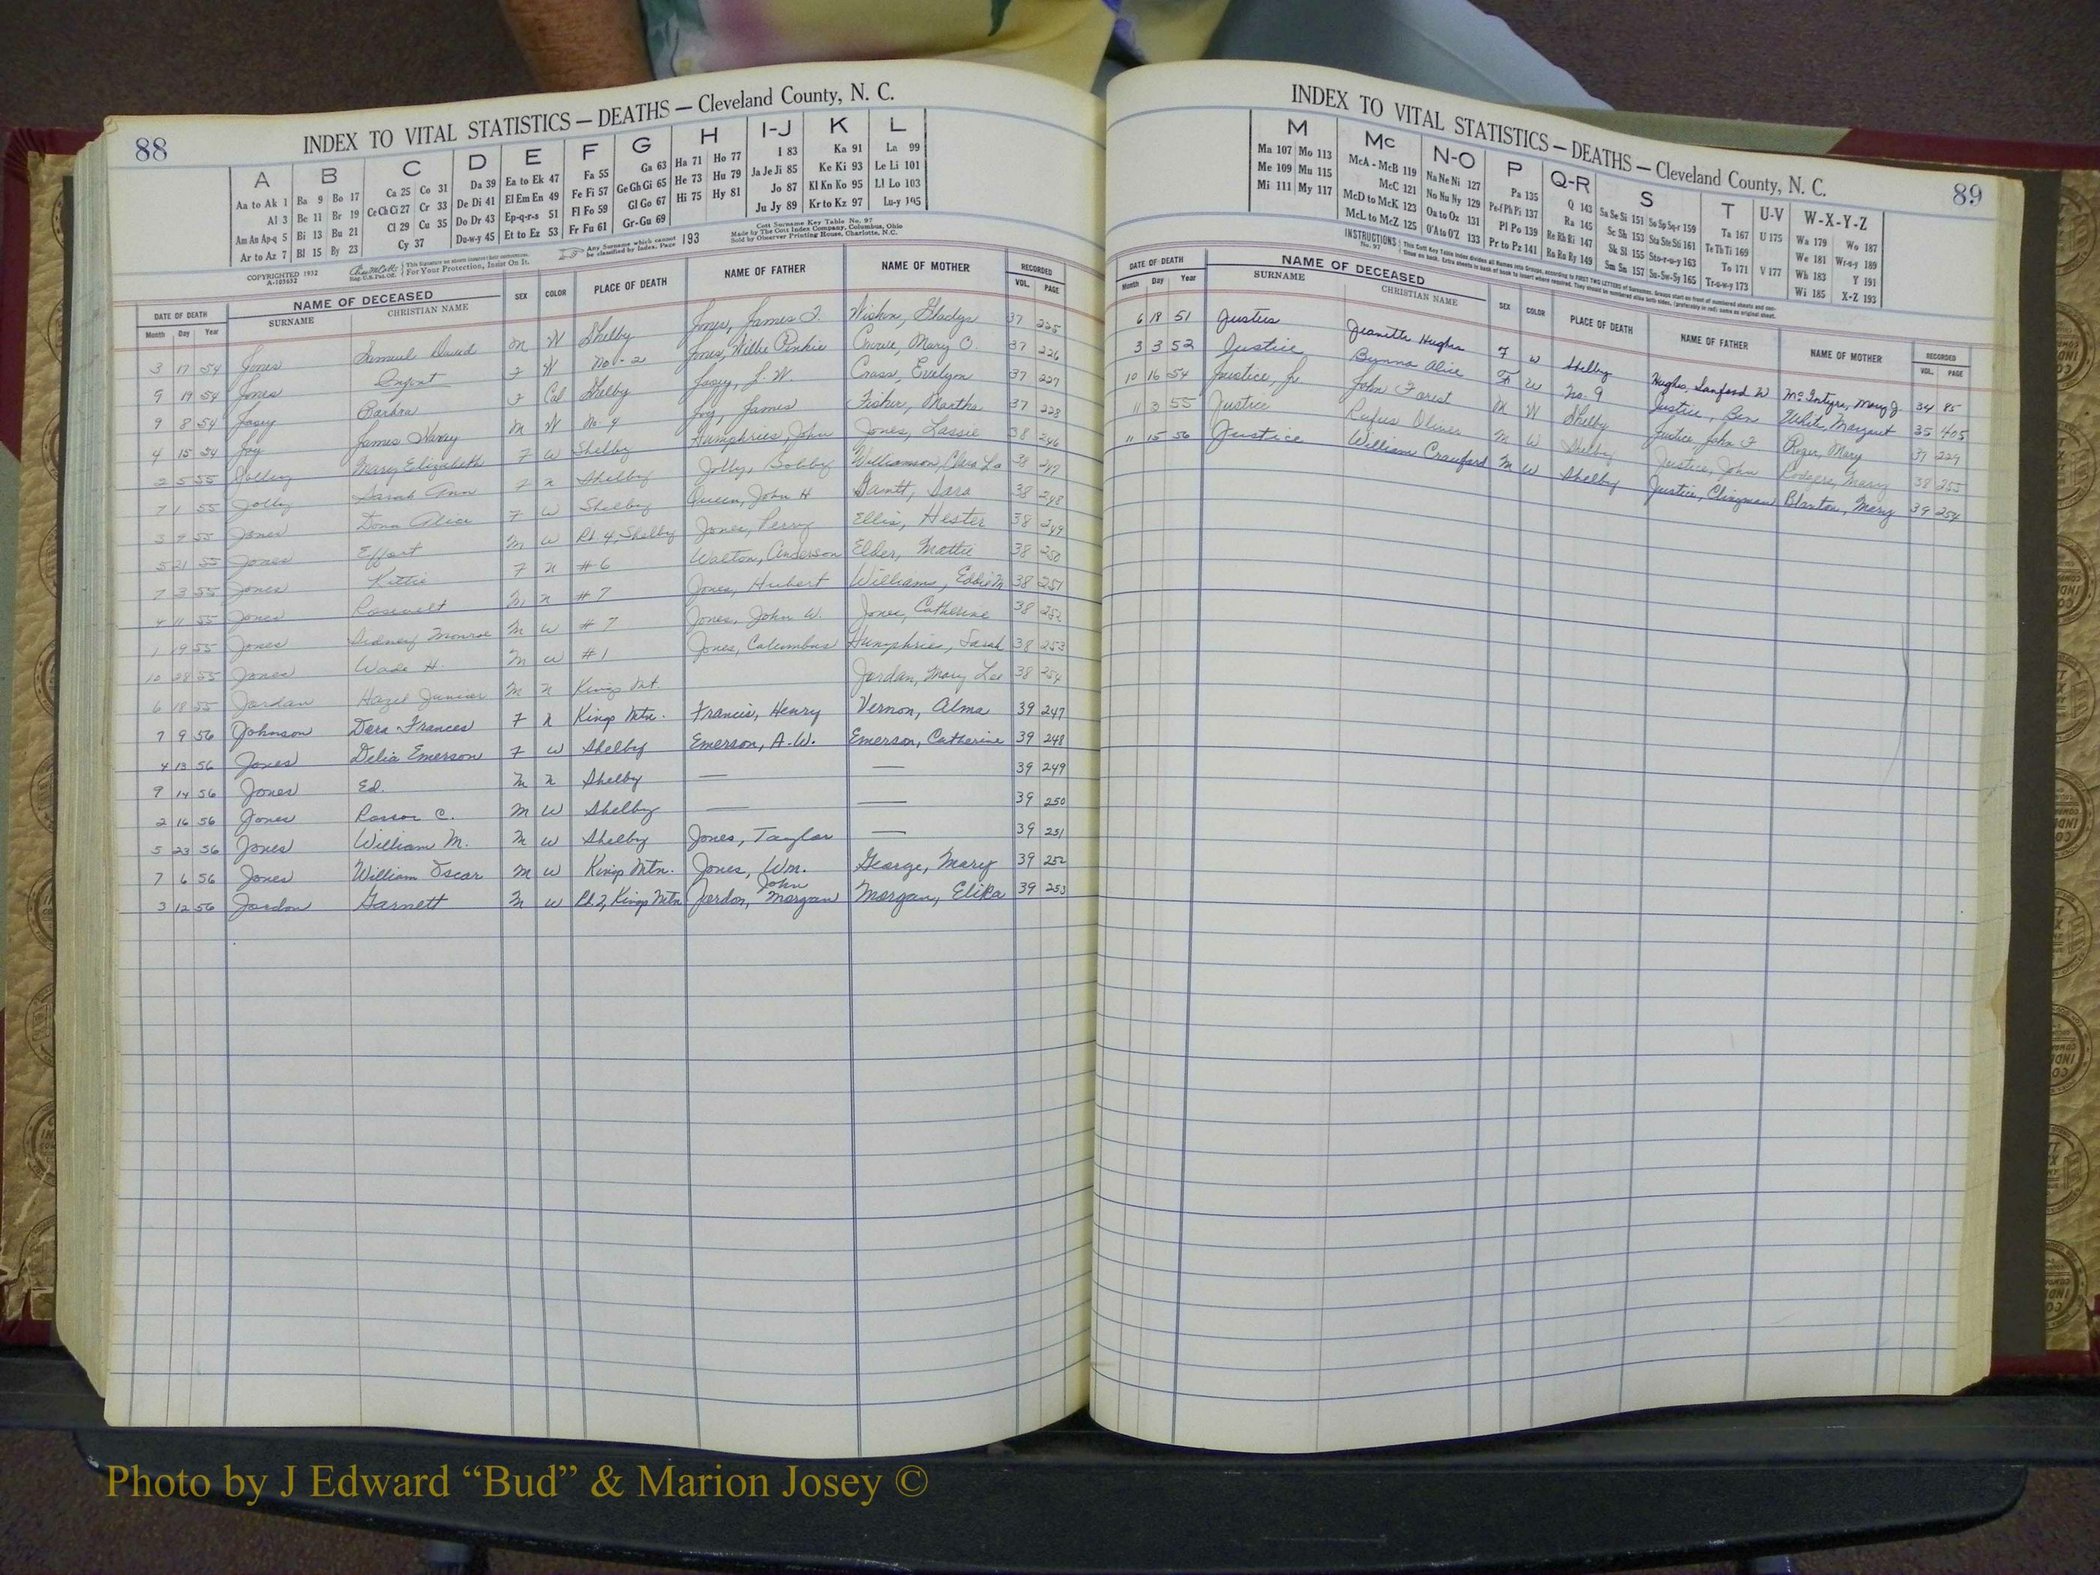 88
INDEX TO VITAL STATISTICS — DEATHS — Cleveland County, N. C.
A B C D E F G H I-J K L
Aa to Ak 1 Ba 9 Bo 17 Ca 25 Co 31 Da 39 Ea to Ek 47 Fa 55 Ga 63 Ha 71 Ho 77 I 83 Ka 91 La 99
Al 3 Be 11 Br 19 Ce Ch Ci 27 Cr 33 De Di 41 El Em En 49 Fe Fi 57 Ge Gh Gi 65 He 73 Hu 79 Ja Je Ji 85 Ke Ki 93 Le Li 101
Am An Ap-q 5 Bi 13 Bu 21 Cl 29 Cu 35 Do Dr 43 Ep-q-r-s 51 Fl Fo 59 Gl Go 67 Hi 75 Hy 81 Jo 87 Kl Kn Ko 95 Ll Lo 103
Ar to Az 7 Bl 15 By 23 Cy 37 Du-w-y 45 Et to Ez 53 Fr Fu 61 Gr-Gu 69 Ju Jy 89 Kr to Kz 97 Lu-y 105
COPYRIGHTED 1932
A-105652
For Your Protection, Insist On It.
Any Surname which cannot be classified by Index, Page 193
Cott Surname Key Table No. 97
Made by The Cott Index Company, Columbus, Ohio
Sold by Observer Printing House, Charlotte, N.C.
DATE OF DEATH NAME OF DECEASED SEX COLOR PLACE OF DEATH NAME OF FATHER NAME OF MOTHER RECORDED
Month Day Year SURNAME CHRISTIAN NAME VOL. PAGE
3 17 54 Jones Samuel David M W Shelby Jones, James F. Gladys 37 225
9 19 54 Jones Infant F W No. 2 Jones, Willie Pinkie Mary O. 37 226
9 8 54 Josey Barbra F Col Shelby Josey, L. W. Evelyn 37 227
4 15 54 Joy James Harvey M W No. 4 Joy, James Fisher, Martha 37 228
2 5 55 Jolley Mary Elizabeth F W Shelby Humphries, John Jones, Lassie 38 246
7 1 55 Jolly Sarah Ann F N Shelby Jolly, Bobby Williamson, Clara La 38 247
3 9 55 Jones Dona Alice F W Shelby Queen, John H Gantt, Sara 38 248
5 21 55 Jones Effort M W Rt 4, Shelby Jones, Perry Ellis, Hester 38 249
7 3 55 Jones Kittie F N #6 Walton, Anderson Elder, Mattie 38 250
4 11 55 Jones Roosevelt M N #7 Jones, Hubert Williams, Eddie M 38 251
1 19 55 Jones Sidney Monroe M W #7 Jones, John W. Jones, Catherine 38 252
10 28 55 Jones Wade H. M W #1 Jones, Columbus Humphries, Sarah 38 253
6 18 55 Jordan Hazel Junior M N Kings Mt. Jordan, Mary Lee 38 254
7 9 56 Johnson Dora Frances F N Kings Mtn. Francis, Henry Vernon, Alma 39 247
4 13 56 Jones Delia Emerson F W Shelby Emerson, A. W. Emerson, Catherine 39 248
9 14 56 Jones Ed. M N Shelby — — 39 249
2 16 56 Jones C. M W Shelby — — 39 250
5 23 56 Jones William M. M W Shelby Jones, Taylor — 39 251
7 6 56 Jones William Oscar M W Kings Mtn. Jones, Wm. George, Mary 39 252
3 12 56 Jordon Garnett M W Rt. 2, Kings Mtn Jordon, John Morgan Morgan, 39 253
INDEX TO VITAL STATISTICS — DEATHS — Cleveland County, N. C.
89
M Mc N-O P Q-R S T U-V W-X-Y-Z
Ma 107 Mo 113 McA - McB 119 Na Ne Ni 127 Pa 135 Q 143 Sa Se Si 151 So Sp Sq-r 159 Ta 167 U 175 Wa 179 Wo 187
Me 109 Mu 115 McC 121 No Nu Ny 129 Pe-f Ph Pi 137 Ra 145 Sc Sh 153 Sta Ste Sti 161 Te Th Ti 169 We 181 Wr-u-y 189
Mi 111 My 117 McD to McK 123 Oa to Oz 131 Pl Po 139 Re Rh Ri 147 Sk Sl 155 Sto-r-u-y 163 To 171 V 177 Wh 183 Y 191
McL to McZ 125 O'A to O'Z 133 Pr to Pz 141 Ro Ru Ry 149 Sm Sn 157 Su-Sw-Sy 165 Tr-u-w-y 173 Wi 185 X-Z 193
INSTRUCTIONS No. 97
DATE OF DEATH NAME OF DECEASED SEX COLOR PLACE OF DEATH NAME OF FATHER NAME OF MOTHER RECORDED
Month Day Year SURNAME CHRISTIAN NAME VOL. PAGE
6 18 51 Justus Jeanette Hughes F W Shelby Hughes, Sanford W McIntyre, Mary J. 34 85
3 3 52 Justice Alice F W No. 9 Justice, Ben White, Margaret 35 405
10 16 54 Justice, Jr. John Forist M W Shelby Justice, John F Mary 37 229
11 3 55 Justice Rufus Oliver M W Shelby Justice, John Rodgers, Mary 38 255
11 15 56 Justice William Crawford M W Shelby Justice, Clingman Blanton, Mary 39 254
Photo by J Edward “Bud” & Marion Josey ©